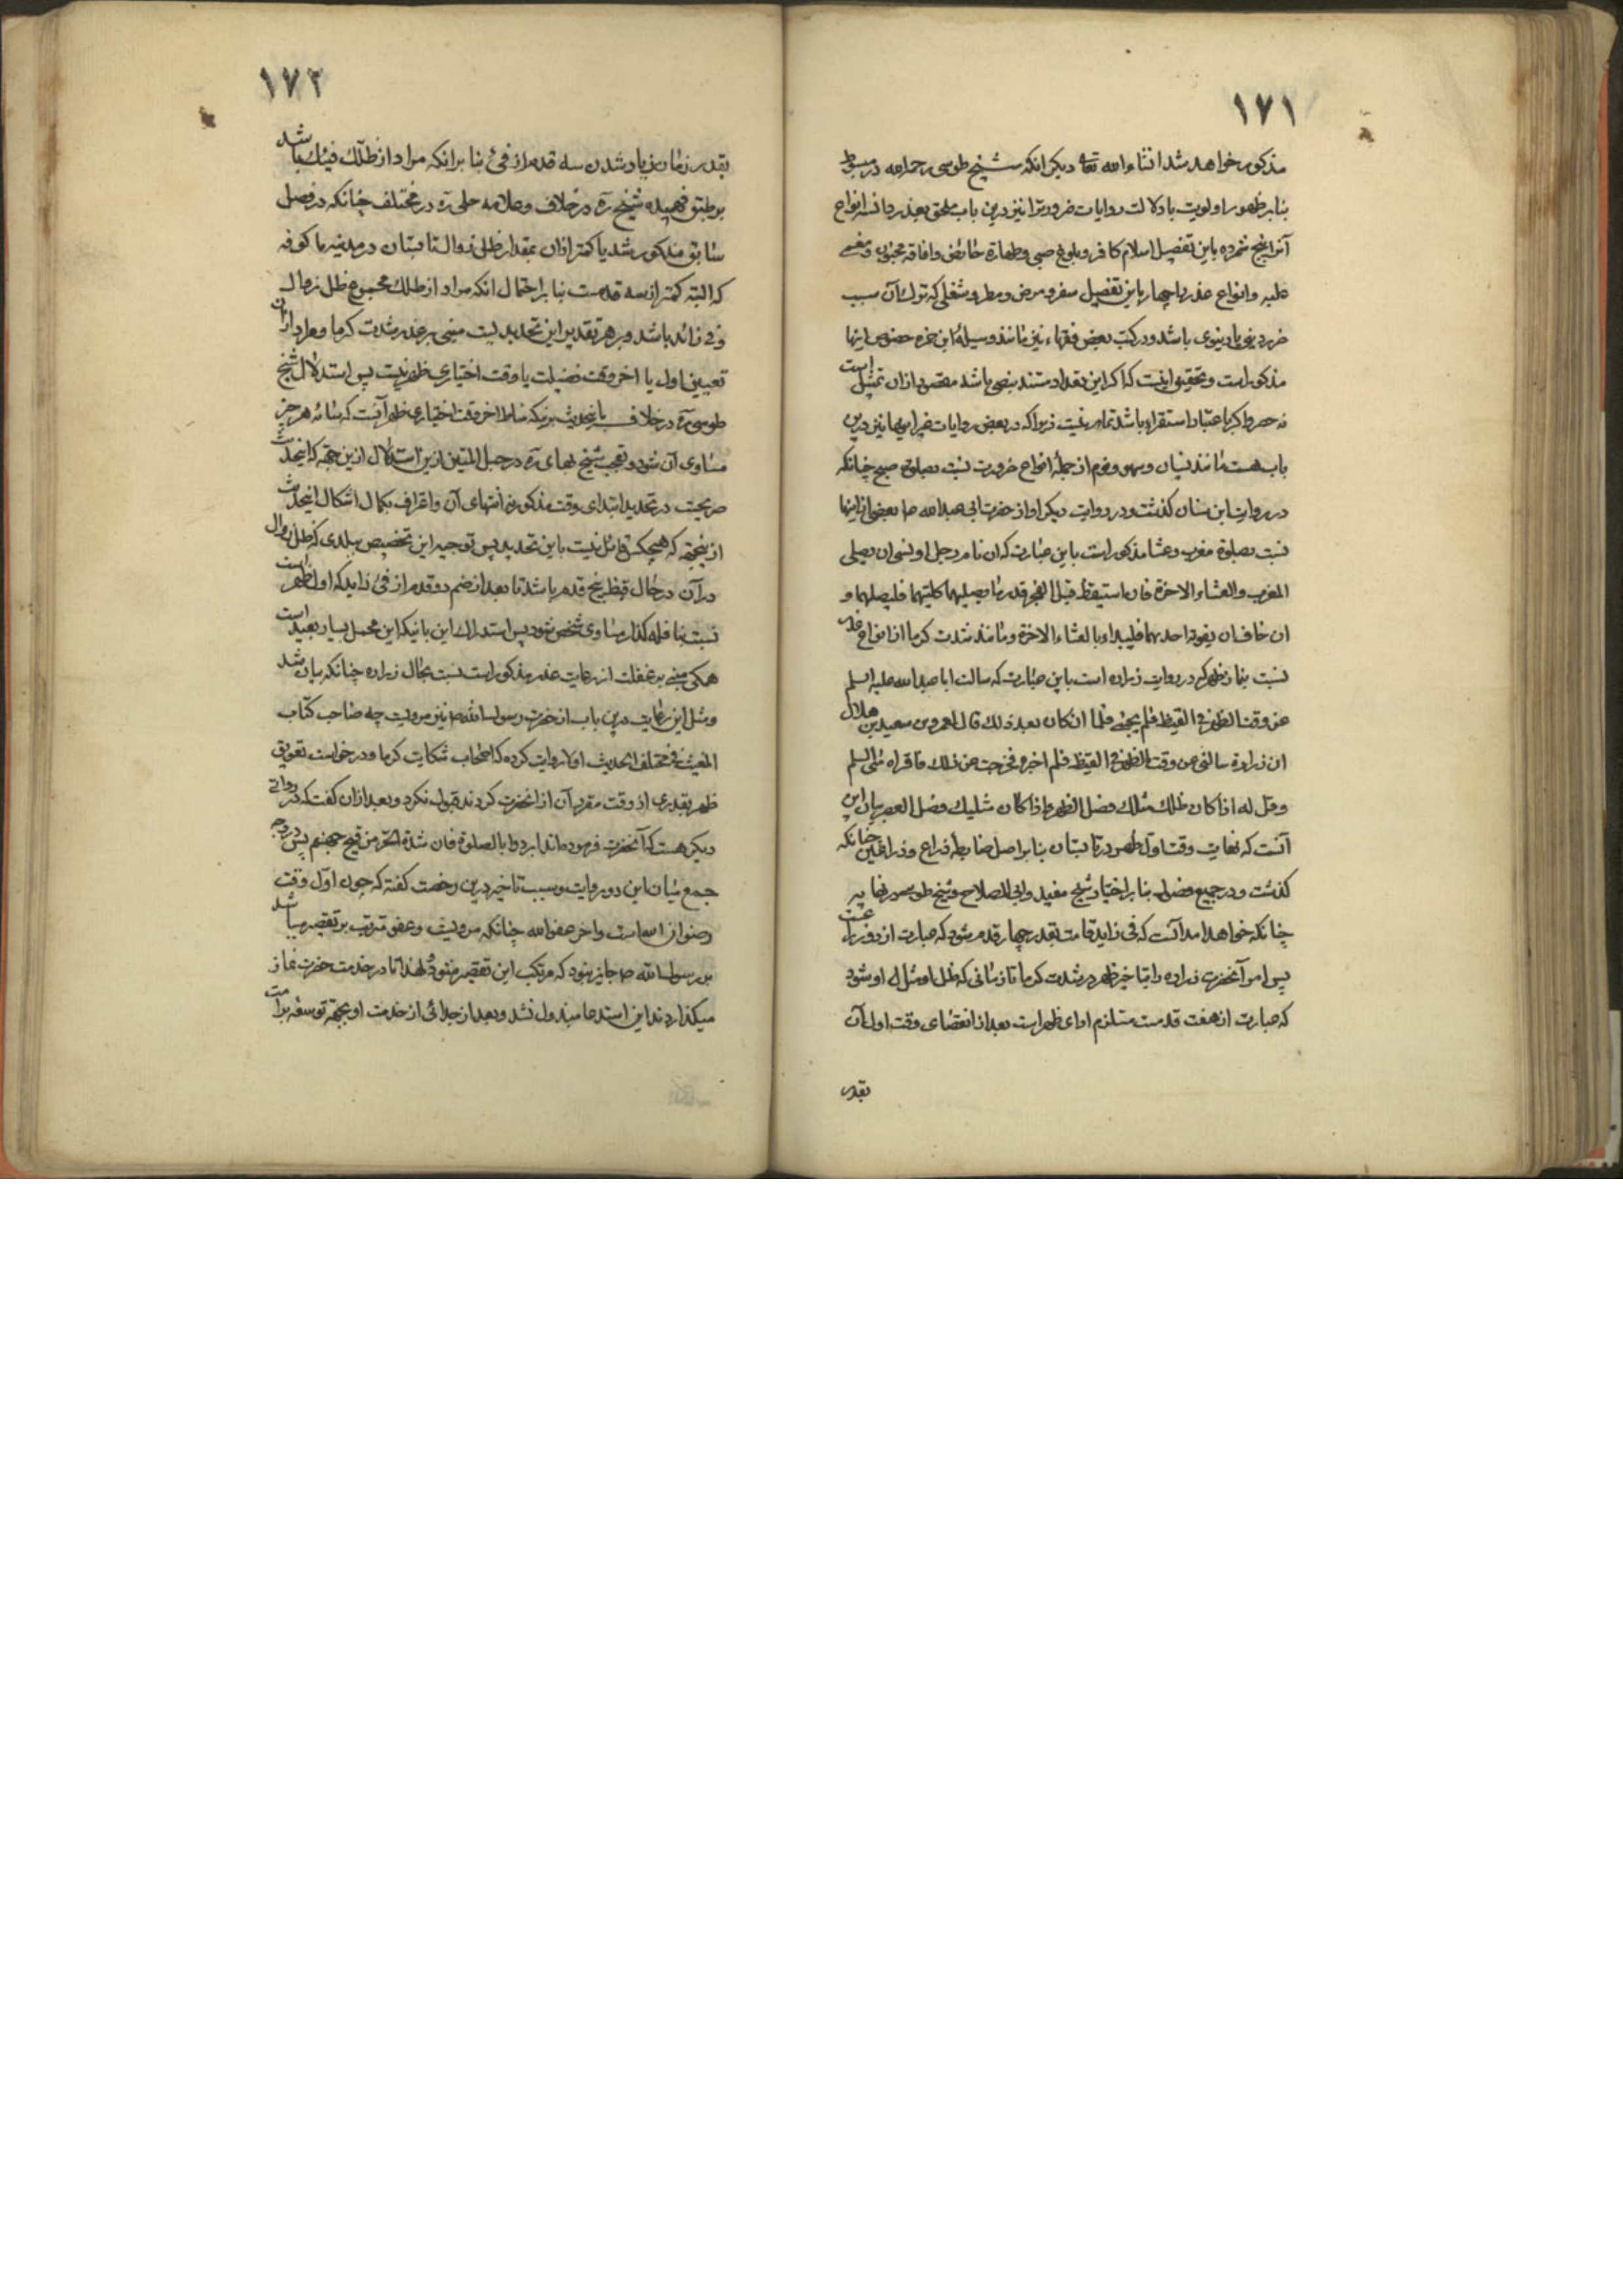 ١٧١
مذكور خواهد شد انشاء الله تعالى ديكر انكه شيخ طوسى رحمه الله در مبسوط
بنابر ظهور اولويت يا دلالت روايات ضرورترا نيز درين باب ملحق بعذر دانسته انواع
آنرا پنج شمرده باين تفصيل اسلام كافر و بلوغ صبى و طهارة حائض وافاقه مجنون و مغمى
عليه وانواع عذر را چهار باين تفصيل سفر و مرض و مطر و شغلى كه ترك آن سبب
ضرر دينى يا دينوى باشد و در كتب بعض فقهاء نيز مانند وسيلهٔ ابن حمزه خصوص اينها
مذكور است و تحقيق اينست كه اكر اين تعداد مستند بنصى باشد مقصود ازان تمثيل است
نه حصر واكر باعتبار استقراء باشد تمام نيست زيرا كه در بعض روايات غير اينها نيز درين
باب هست مانند نسيان و سهو و نوم از جملهٔ انواع ضرورت نسبت بصلوة صبح چنانكه
در روايت ابن سنان كذشت و در روايت ديكر او از حضرت ابى عبد الله ع بعضى از اينها
نسبت بصلوة مغرب و عشا مذكور است باين عبارت كه ان نام رجل او نسى ان يصلى
المغرب والعشاء الاخرة فان استيقظ قبل الفجر قدر ما يصليهما كلتيهما فليصلهما و
ان خاف ان يفوته احديهما فليبدا بالعشاء الاخرة و مانند شدت كرما از انواع عذر
نسبت بنماز ظهر كه در روايت زراره است باين عبارت كه سالت ابا عبد الله عليه السلم
عن وقت الظهر فى القيظ فلم يجبنى فلما ان كان بعد ذلك قال لعمرو بن سعيد بن هلال
ان زرارة سالنى عن وقت الظهر فى القيظ فلم اخبره فخرجت من ذلك فاقراه منى السلم
و قل له اذا كان ظلك مثلك فصل الظهر واذا كان مثليك فصل العصر بيان اين
آنست كه نهايت وقت اول ظهر در تابستان بنابر اصل ضابطهٔ ذراع و ذراعين چنانكه
كذشت و در جميع فصول بنابر اختيار شيخ مفيد وابى الصلاح و شيخ طوسى در نهايه
چنانكه خواهد امد آنست كه فى زايد قامت بقدر چهار قدم شود كه عبارت از دو ذراعست
پس امر آنحضرت زراره را بتاخير ظهر در شدت كرما تا زمانى كه ظل او مثل او شود
كه عبارت از هفت قدمست مستلزم اداى ظهر است بعد از انقضاى وقت اول آن
بقدر
١٧٢
بقدر زمان زياد شدن سه قدم از فئ بنا برانكه مراد از ظلك فيئك باشد
بر طبق فهميده شيخ ره در خلاف و علامه حلى ره در مختلف چنانكه در فصل
سابق مذكور شد يا كمتر ازان بمقدار ظل زوال تابستان در مدينه يا كوفه
كه البته كمتر از سه قدمست بنا بر احتمال انكه مراد از ظلك مجموع ظل زوال
و فئ زائد باشد و بر هر تقدير اين تحديد ليست مبنى بر عذر شدت كرما و مراد ازان
تعيين اول يا اخر وقت فضيلت يا وقت اختيارى ظهر نيست پس استدلال شيخ
طوسى ره در خلاف باينحديث برينكه مناط اخر وقت اختيارى ظهر آنست كه سايه هر چيز
مساوى آن شود و تعجب شيخ بهاى ره در حبل المتين ازين استدلال ازين جهة كه اينحديث
صريحست در تحديد ابتداى وقت مذكور نه انتهاى آن واعتراف بكمال اشكال اينحديث
ازينجهة كه هيچكس قائل نيست باين تحديد پس توجيه اين تخصيص ببلدى كه ظل زوال
در آن در حال قيظ پنج قدم باشد تا بعد از ضم دو قدم از فئ زايد كه اول ظهر است
نسبت بنافله كذار مساوى شخص شود پس استدراك اين بانيكه اين محمل بسيار بعيد است
همكى مبنى بر غفلت از رعايت عذر مذكور است نسبت بحال زراره چنانكه بيان شد
و مثل اين رعايت درين باب از حضرت رسول الله ص نيز مرويست چه صاحب كتاب
المغيث فى مختلف الحديث اولا روايت كرده كه اصحاب شكايت كرما و درخواست تعويق
ظهر بقدرى از وقت مقرر آن از انحضرت كردند قبول نكرد و بعد ازان كفت كه در روايتى
ديكر هست كه آنحضرت فرموده اند ابردوا بالصلوة فان شدة الحر من قيح جهنم پس در وجه
جمع ميان اين دو روايت و سبب تاخير درين رخصت كفته كه چون اول وقت
رضوان الله است واخر عفو الله چنانكه مرويست و عفو مترتب بر تقصير ميباشد
بر رسول الله ص جايز نبود كه مرتكب اين تقصير شود لهذا تا در خدمت حضرت نماز
ميكذاردند اين استدعا مبذول نشد و بعد از جدائى از خدمت او بجهة توسعه بر امت